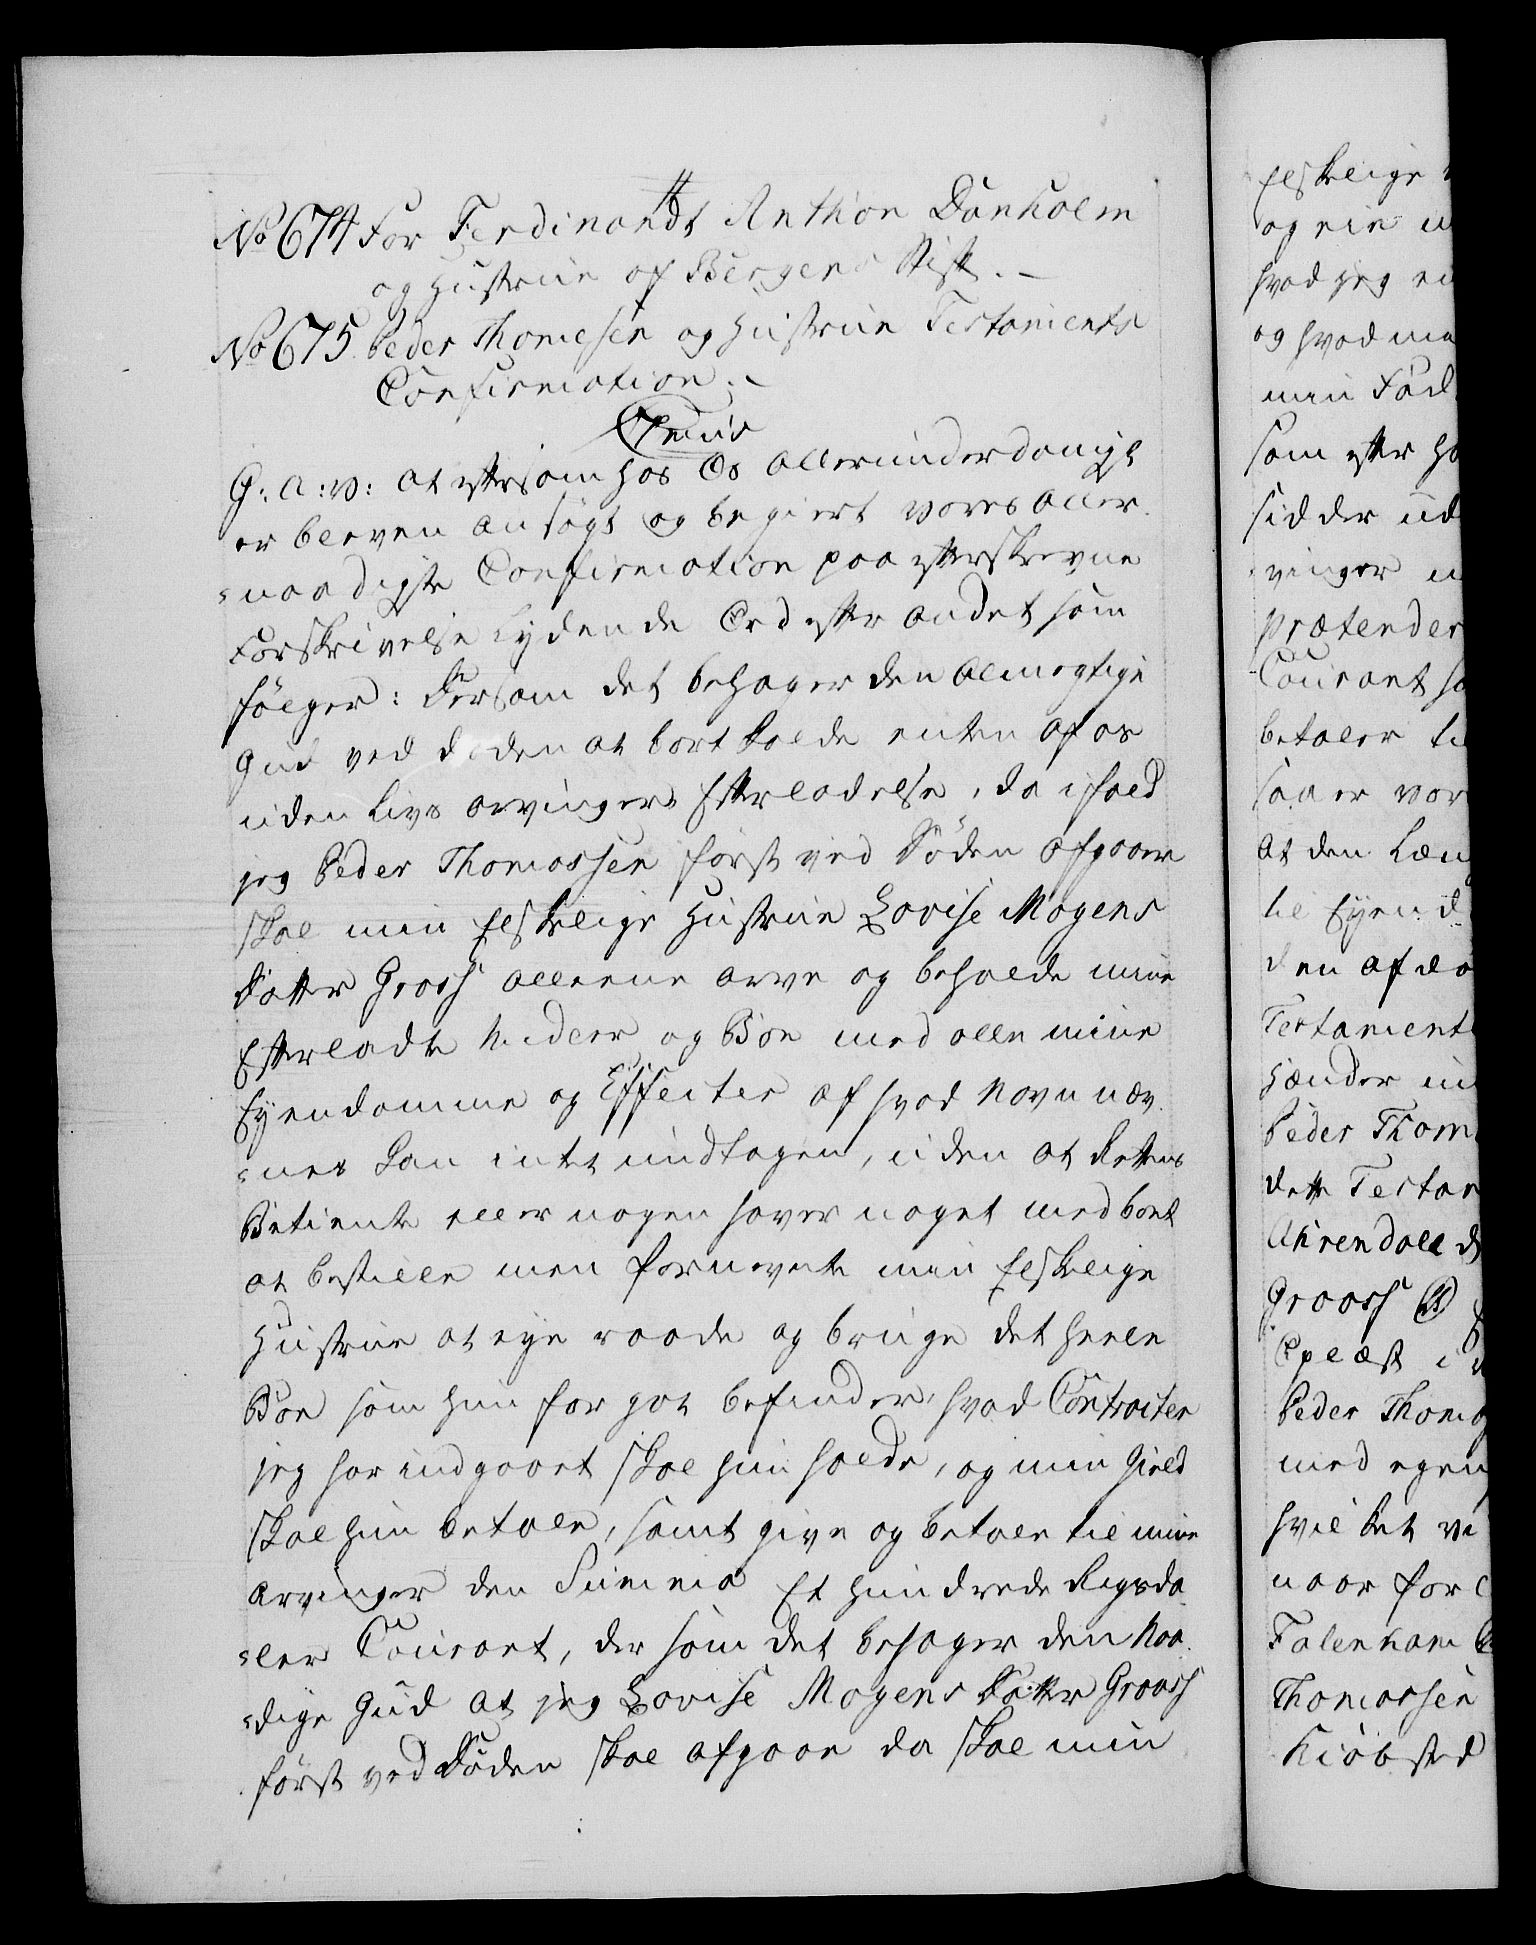 No 674 For Ferdinandt Anthon Danholm
og Hustrue af Bergens Stift.
No 675. Peder Thomesen og Hustrue Testaments
Confirmation.
G: A: V: at eftersom hos Os allerunderdanigst
er bleven ansøgt og begiert vores aller-
=naadigste Confirmation paa efterskrevne
Forskrivelse lydende Ord efter andet som
følger: Dersom det behager den almegtige
Gud ved døden at bort kalde enten af os
uden Livs arvingers Efterladelse, da ifald
jeg Peder Thomassen først ved Døden afgaaer
skal min Elskelige Hustrue Lovise Mogens
Datter Groos allene arve og beholde mine
Efterladte Midler og Boe med alle mine
Eyendomme og Effecter af hvad Navn næv-
=nes kan intet undtagen, uden at Rettens
Betiente eller nogen haver noget med boet
at bestille men fornevnte min Elskelige
Hustrue at eye raade og bruge det heele
Boe som hun for got befinder, hvad Contracter
jeg har indgaaet skal hun holde, og min Gield
skal hun betale, samt give og betale til mine
Arvinger den Summa Et Hundrede Rigsda-
=ler Courant, der som det behager den Naa-
=dige Gud at jeg Lovise Mogens Datter Grooss
først ved Døden skal afgaae da skal min
Elskelige
og eie
hvad jeg
og hvad
min Fød
som efter
sidder ud
vinger
prætender
Courant
betaler
saa er vor
at den Læn
til Eyend
den afdø
Testament
Hænder
Peder Thom
dette Testa
Ahrendall
Grooss
Oplæst
Peder Thoma
med egen
hvilket vi
naar for
Falenkam
Thomassen
Kiøbsted